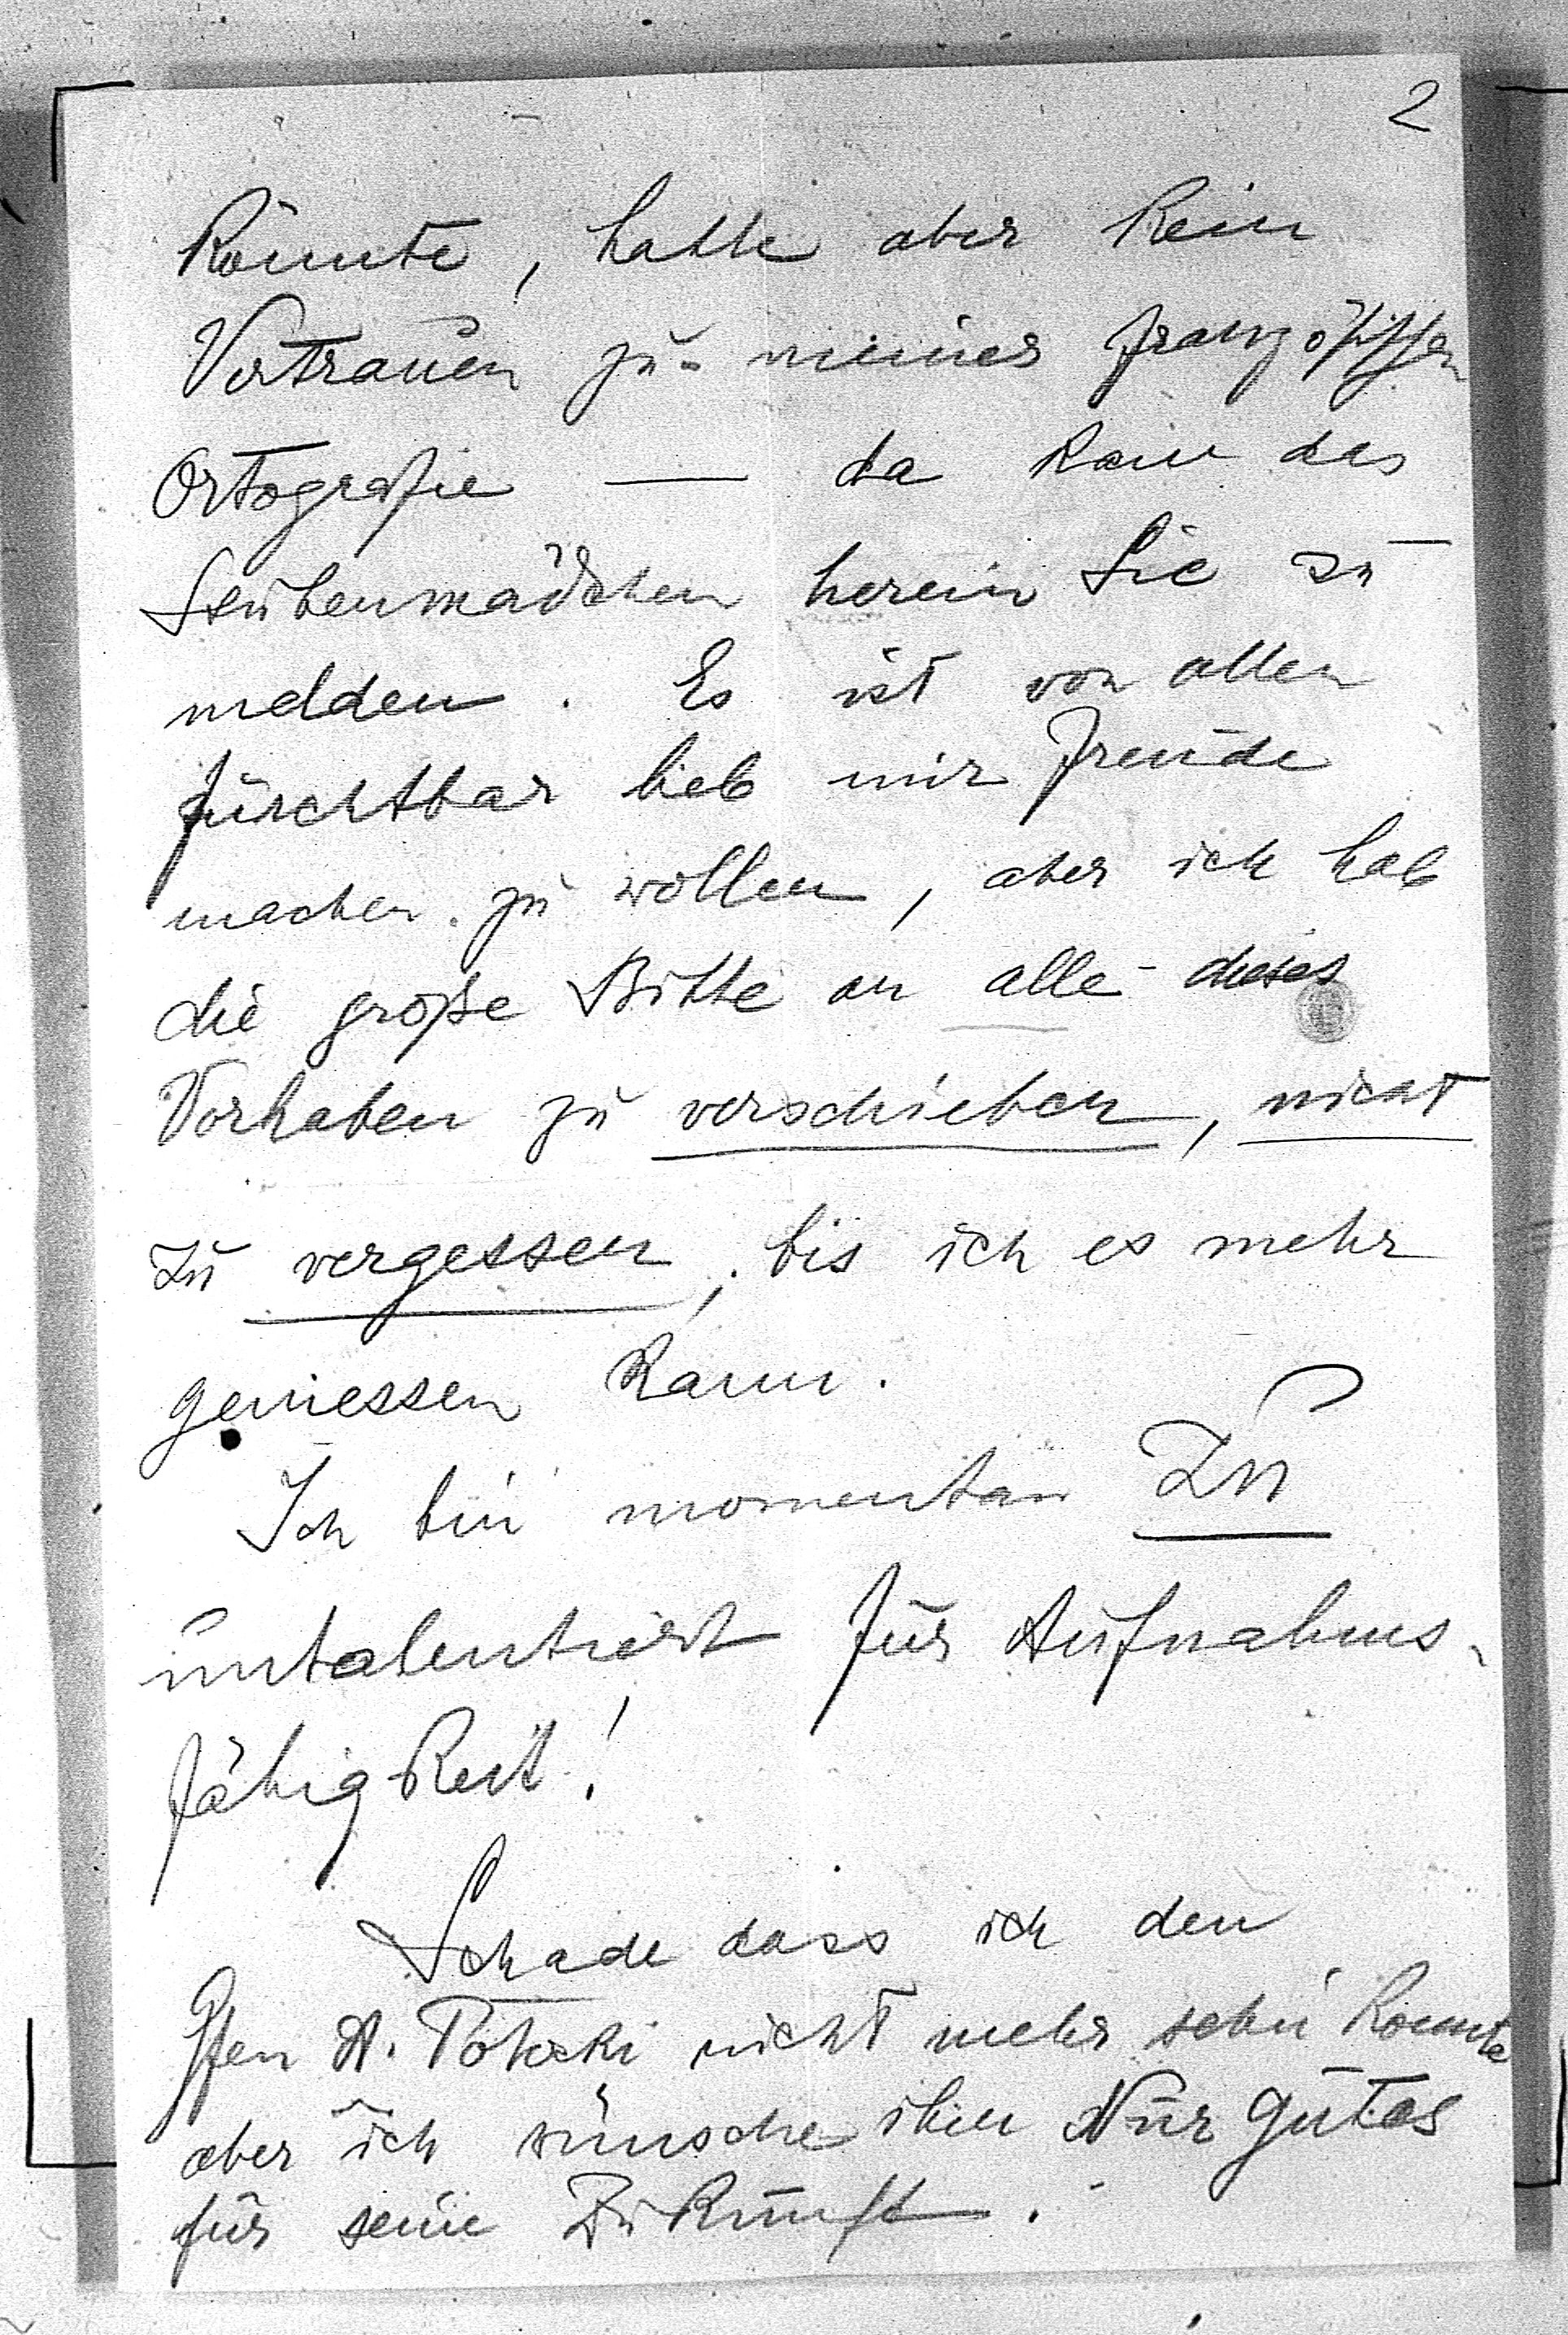 2
könnte, hatte aber kein
Vertrauen zu meiner französischen
Ortografie — da kam das
Stubenmädchen herein Sie zu
melden. Es ist von allen
furchtbar lieb mir Freude
machen zu wollen, aber ich hab
die große Bitte an alle dieses
Vorhaben zu verschieben, nicht
zu vergessen, bis ich es mehr
geniessen kann.
Ich bin momentan Zu
untalentiert für Aufnahms-
fähigkeit!
Schade dass ich den
Gfen A. Potocki nicht mehr sehn konnte
aber ich wünsche ihm Nur gutes
für seine Zukunft.